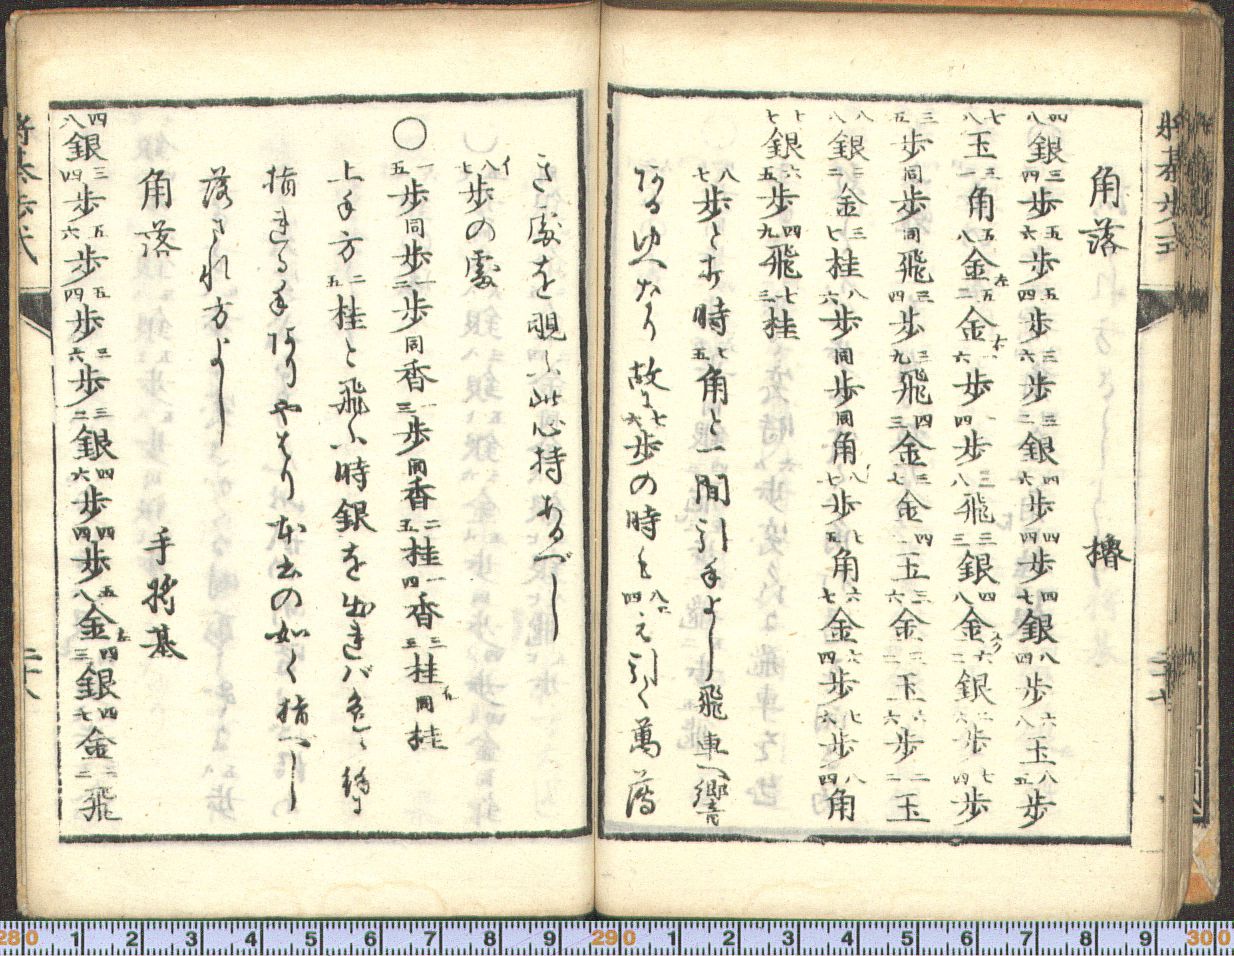 角落 櫓
四八銀三四歩五六歩五四歩三六歩三二銀四六歩四四歩四七銀八四歩六八玉八五歩
七八玉三一角五八金左五二金右一六歩一四歩三八飛二三銀四八金六二銀二六歩七四歩
三五歩同歩同飛三四歩三九飛四三金三七金四一玉三六金三二玉六歩二二玉
八八銀三二金三七桂八六歩同歩同角八七歩七五角六七金六四歩七六歩八四角
十七銀六五歩四九飛七三桂
八七歩と打時七五角と一間引手よし飛車へ響
ゆへなり故に七六歩の時も八四へ引く萬落
き處を覗ふ此心持あるべし
八七歩の處
〇一五歩同歩一二歩同香一三歩同香二五桂一四香三三桂同桂
上手方二五桂と飛ふ時銀を出ればもとゝ
指れる手ありやはり本書の如く指べし
落され方よし
角落 手将棊
四八銀三四歩五六歩五四歩三六歩三二銀四六歩四四歩五八金左四三銀四七金二二飛
将棊歩式 二十八
将棊歩式 二十七
280 1 2 3 4 5 6 7 8 9 290 1 2 3 4 5 6 7 8 9 300